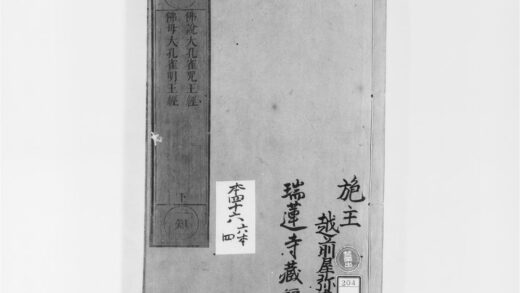 施主
越前屋弥
瑞蓮寺藏
佛說大孔雀咒王經
佛母大孔雀明王經
下
本四十六
六本
四
204